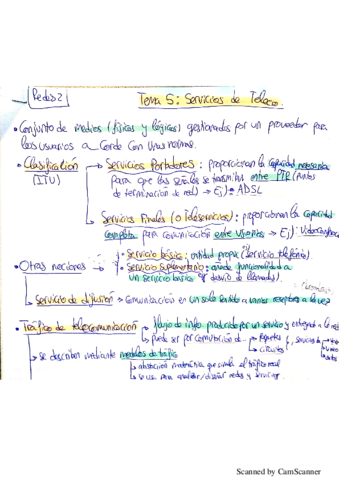 Redes 2
Tema 5: Servicios de Teleco.
• Conjunto de medios (físicos y lógicos) gestionados por un proveedor para
los usuarios acorde con una norma.
• Clasificación → Servicios Portadores: proporcionan la capacidad necesaria
(ITU) para que las señales se transmitan entre PTR (Puntos
de terminación de red) → Ej: ADSL
→ Servicios Finales (o Teleservicios): proporcionan la capacidad
completa para comunicación entre usuarios → Ej:
• Otras nociones → • Servicio básico: utilidad propia (Servicio telefónico)
• Servicio suplementario: añade funcionalidad a
un servicio básico (desvío de llamadas).
→ Servicio de difusión → Comunicación en un solo sentido a varios receptores a la vez
• Tráfico de telecomunicación → flujo de info producido por un servicio y entregado a la red
puede ser por conmutación de → Paquetes
→ circuitos
→ se describen mediante modelos de tráfico
→ abstracción matemática que simula el tráfico real
→ se usa para analizar/diseñar redes y servicios
Scanned by CamScanner